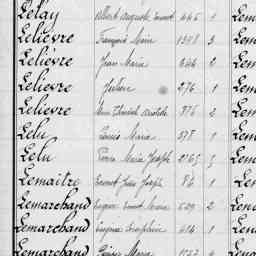 Lelay Albert Auguste 445 1 Lem
Lelièvre François Marie 1398 3 Lem
Lelièvre Jean Marie 644 2 Lem
Lelièvre Julien 276 1 Lem
Lelievre 876 2 Lem
Lelu Louis Marie 378 1 Lem
Lelu Pierre Marie Joseph 2765 5 Lem
Lemaître Ernest Jean Joseph 84 1 Lem
Lemarchand Eugène Marie 629 2 Lem
Lemarchand Eugène 414 1 Lem
Lemarchand Marie Lem